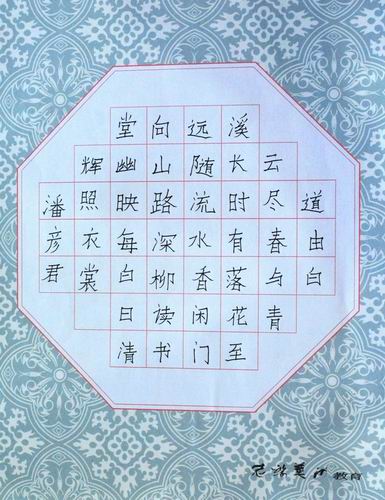 道由白
云尽春与青
溪长时有落花至
远随流水香闲门
向山路深柳读书
堂幽映每白日清
辉照衣裳
潘彦君
教育